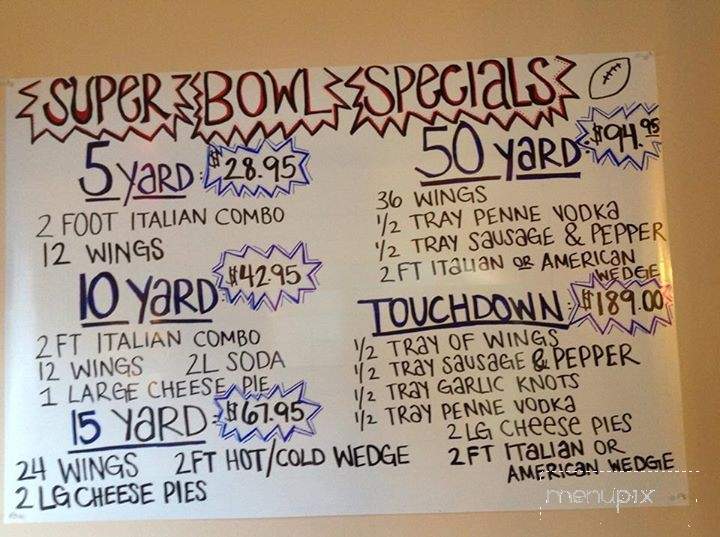 SUPER BOWL SPECIALS
5 YARD: $28.95
2 FOOT ITALIAN COMBO
12 WINGS
10 YARD: $42.95
2 FT ITALIAN COMBO
12 WINGS 2L SODA
1 LARGE CHEESE PIE
15 YARD: $67.95
24 WINGS 2FT HOT/COLD WEDGE
2 LG CHEESE PIES
50 YARD: $94.95
36 WINGS
1/2 TRAY PENNE VODKA
1/2 TRAY SAUSAGE & PEPPER
2 FT ITALIAN OR AMERICAN
WEDGE
TOUCHDOWN: $189.00
1/2 TRAY OF WINGS
1/2 TRAY SAUSAGE & PEPPER
1/2 TRAY GARLIC KNOTS
1/2 TRAY PENNE VODKA
2 LG CHEESE PIES
2FT ITALIAN OR
AMERICAN WEDGE
menupix